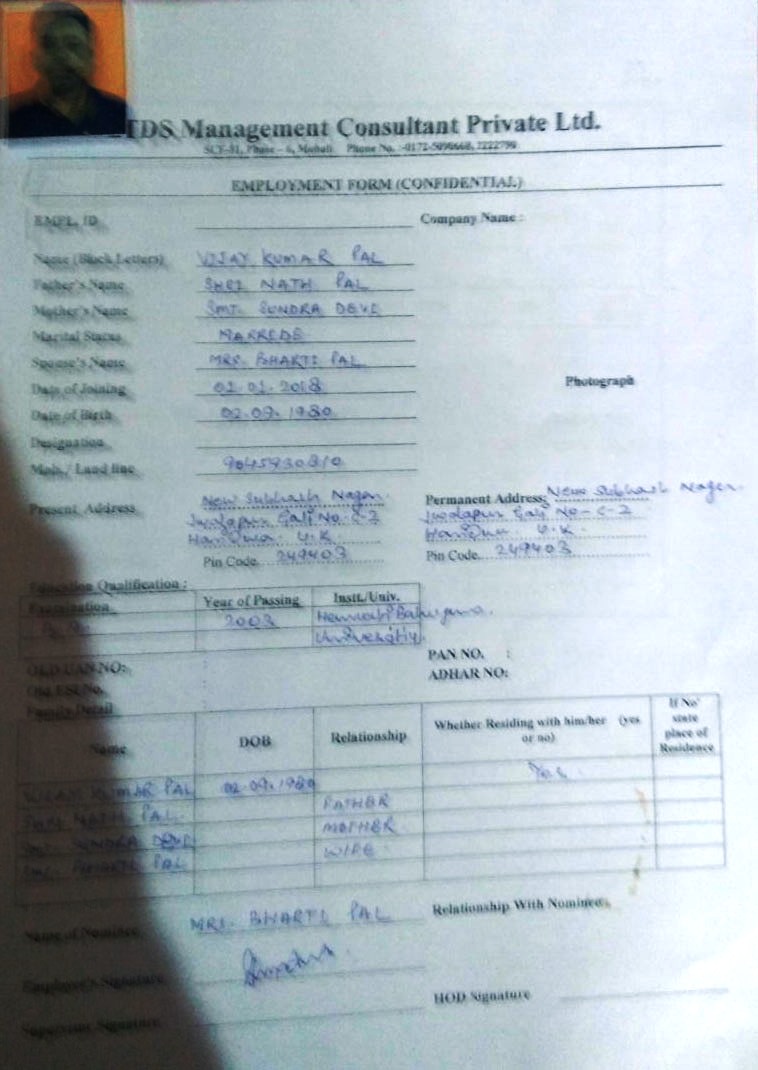 TDS Management Consultant Private Ltd.
SCF-51, Phase - 6, Mohali Phone No. :-0172-5090668, 2222790
EMPLOYMENT FORM (CONFIDENTIAL)
EMPL. ID Company Name :
Name (Block Letters) VIJAY KUMAR PAL
Father's Name SHRI NATH PAL
Mother's Name SMT. SUNDRA DEVI
Marital Status MARREDE
Spouse's Name MRS. BHARTI PAL
Date of Joining 02.01.2018
Photograph
Date of Birth 02.09.1980
Designation
Mob./ Land line 9045930810
Present Address New Subhash Nagar. Permanent Address: New Subhash Nagar.
Jwalapur Gali No - C-2 Jwalapur Gali No - C-2
Haridwar U.K Haridwar U.K
Pin Code. 249403 Pin Code. 249403
Education Qualification :
Examination Year of Passing Instt./Univ.
2003 Bahuguna.
University.
OLD UAN NO: : PAN NO. :
Old ESI No. : ADHAR NO:
Family Detail
Name DOB Relationship Whether Residing with him/her (yes or no) If No' state place of Residence
VIJAY KUMAR PAL 02.09.1980 Yes.
SHRI NATH PAL. FATHER
SMT. SUNDRA DEVI MOTHER
SMT. BHARTI PAL WIFE
Name of Nominee MRS. BHARTI PAL Relationship With Nominee
Employee's Signature
HOD Signature
Supervisor Signature